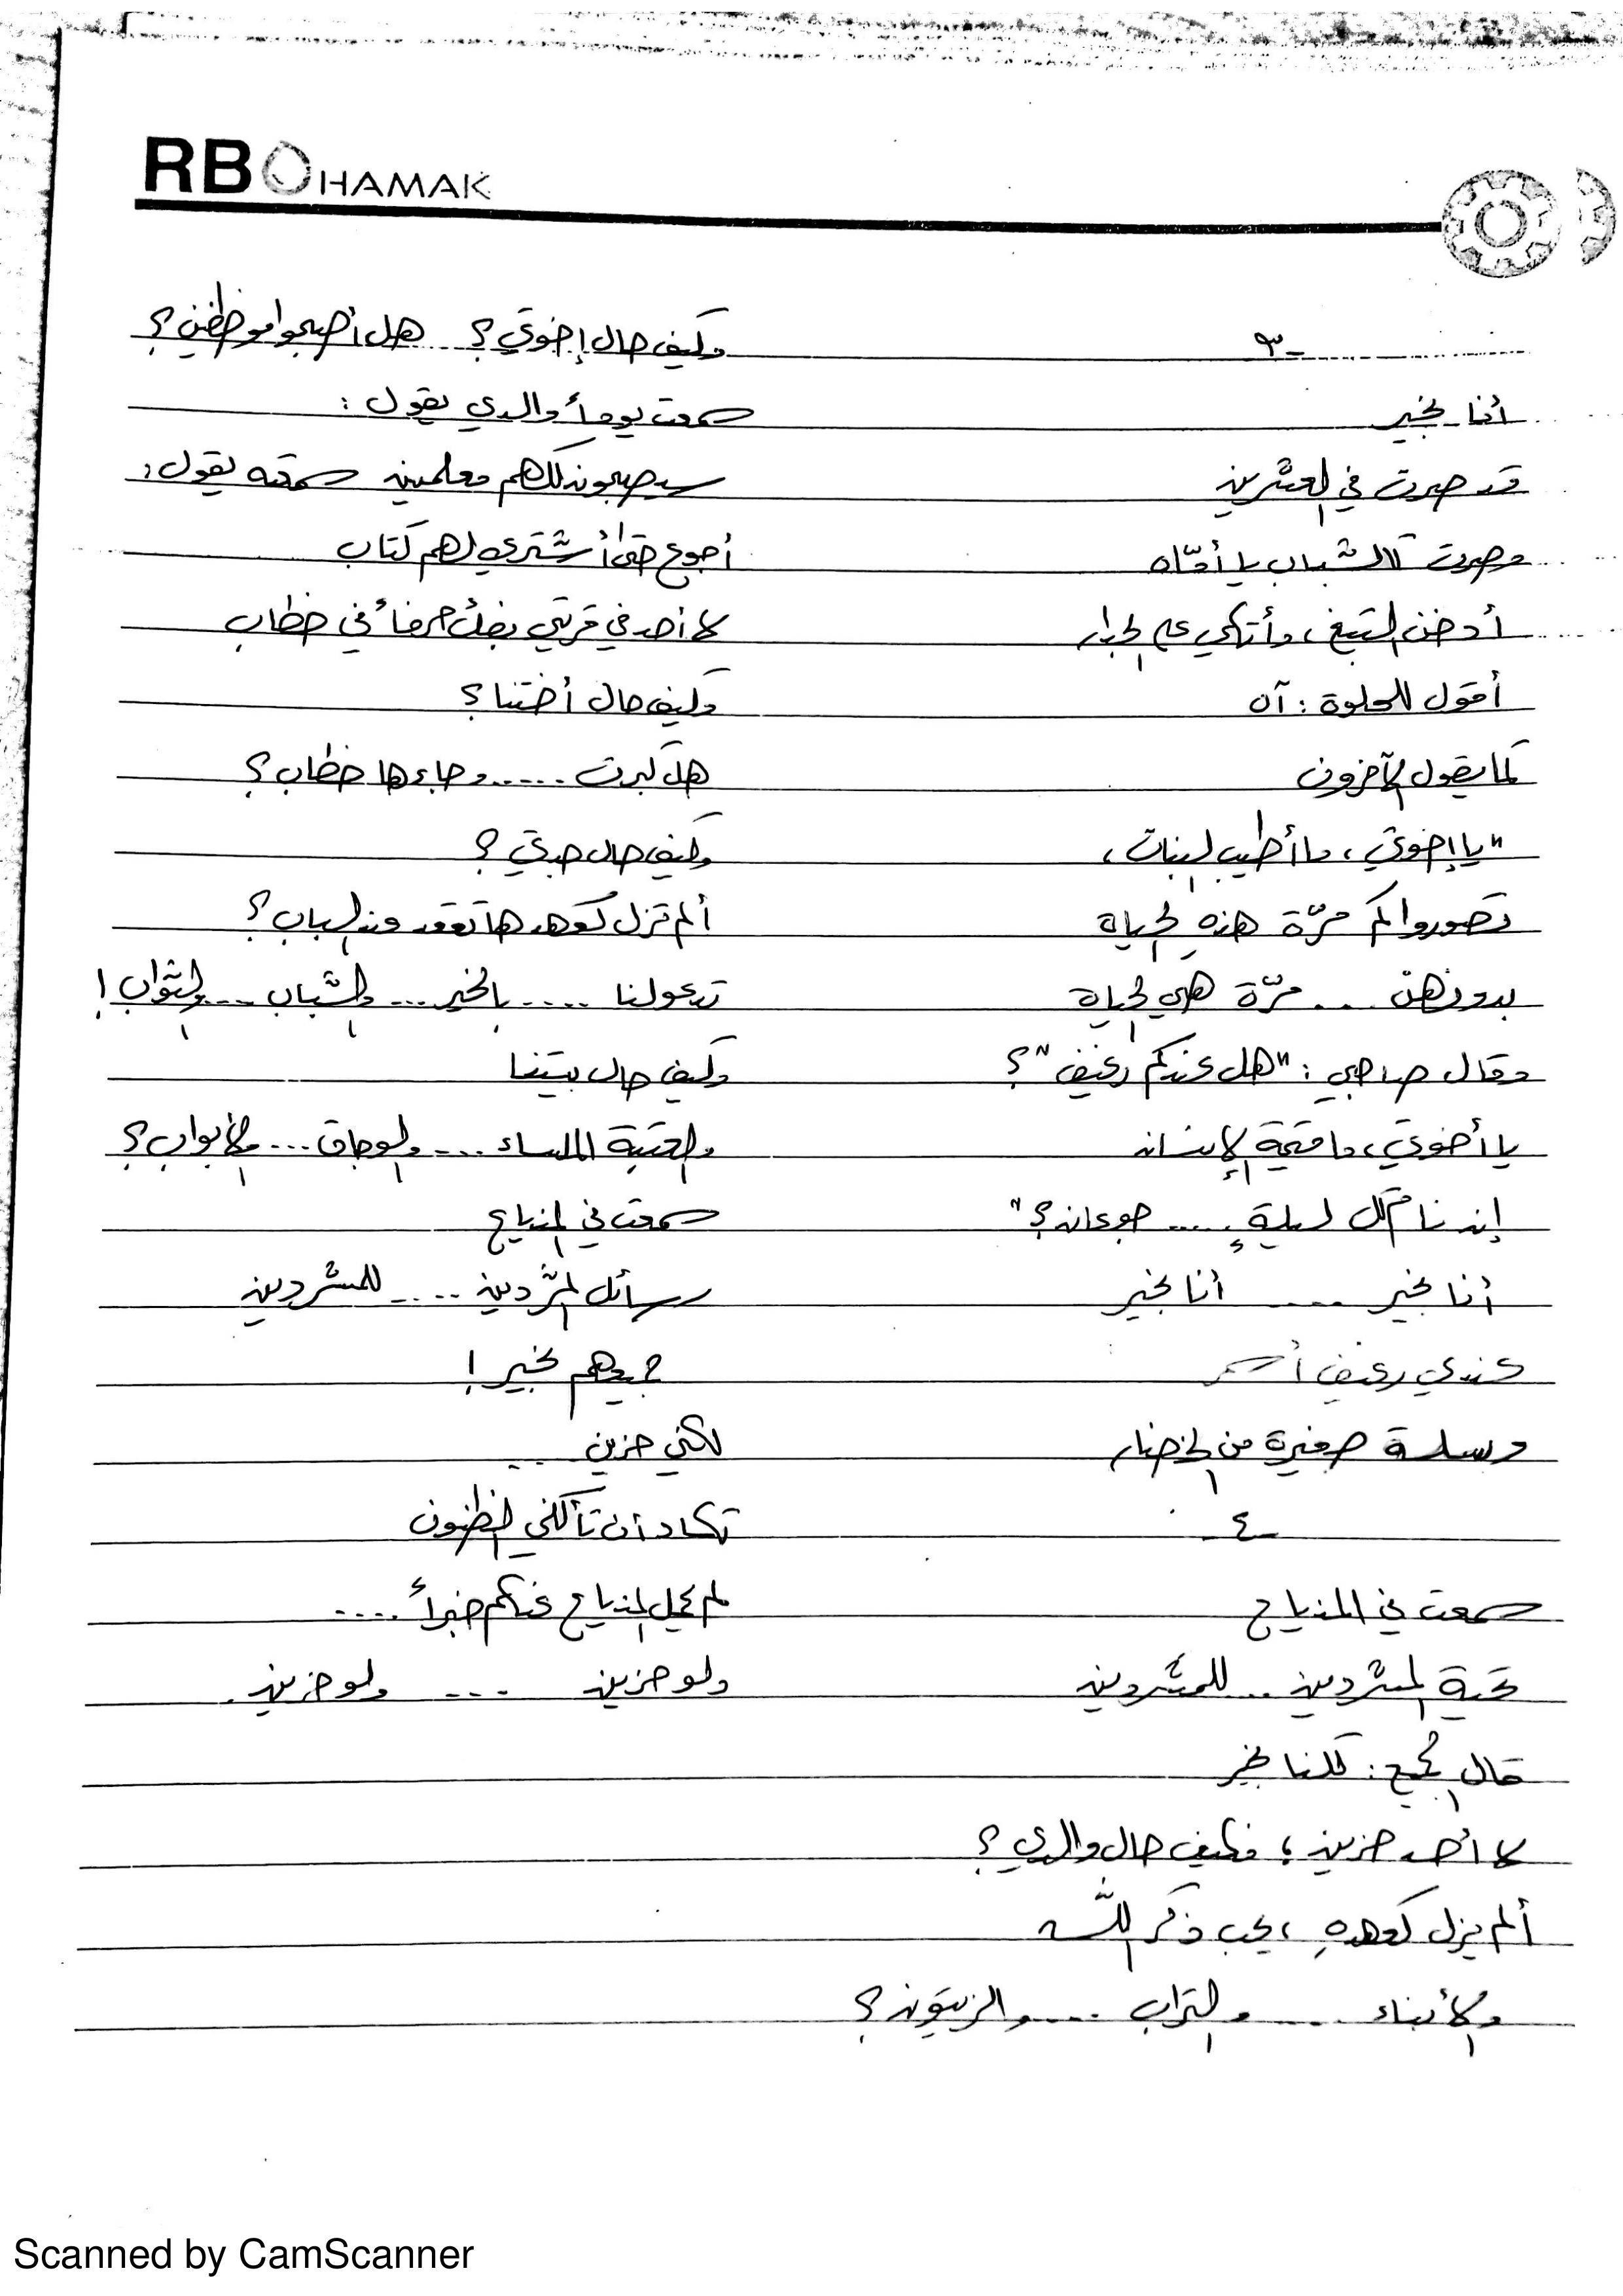 RB HAMAK
-٣
أنا بخير
قد صرت في العشرين
وصرت كالشباب يا أمّاه
أدخن التبغ، وأتكي على الجدار
أقول للحلوة : آه
كما يقول الآخرون
"يا إخوتي، ما أطيب البنات،
تصوروا كم مرّة هذهِ الحياة
بدونهن .... مرّة هي الحياة
وقال صاحبي : "هل عندكم رغيف"؟
يا أخوتي، ما قيمة الإنسان
إن نام كل ليلةٍ .... جوعان؟"
أنا بخير .... أنا بخير
عندي رغيف أسمر
وسلة صغيرة من الخضار
-٤-
سمعت في المذياع
تحية المشردين .. للمشردين
قال الجميع : كلنا بخير
لا أحد حزين ؛ فكيف حال والدي؟
ألم يزل كعهدهِ ، يحب ذكر اللّه
والأبناء .... والتراب .... والزيتون؟
وكيف حال إخوتي؟ هل أصبحوا موظفين؟
سمعت يوماً والدي يقول :
سيصبحون كلهم معلمين سمعته يقول:
أجوع حتى أشتري لهم كتاب
لا أحد في قريتي يفك حرفاً في خطاب
وكيف حال أختنا؟
هل كبرت ..... وجاءها خطاب؟
وكيف حال جدتي؟
ألم تزل كعهدها تقعد عند الباب؟
تدعو لنا .... بالخير... والشباب ... والثواب!
وكيف حال بيتنا
والعتبة الملساء .... والوجاق ... والأبواب؟
سمعت في المذياع
رسائل المشّردين .... للمشردين
جميعهم بخير!
لكني حزين ..
تكاد أن تأكلني الظنون
لم يحمل المذياع عنكم خبراً ....
ولو حزين ... ولو حزين.
Scanned by CamScanner